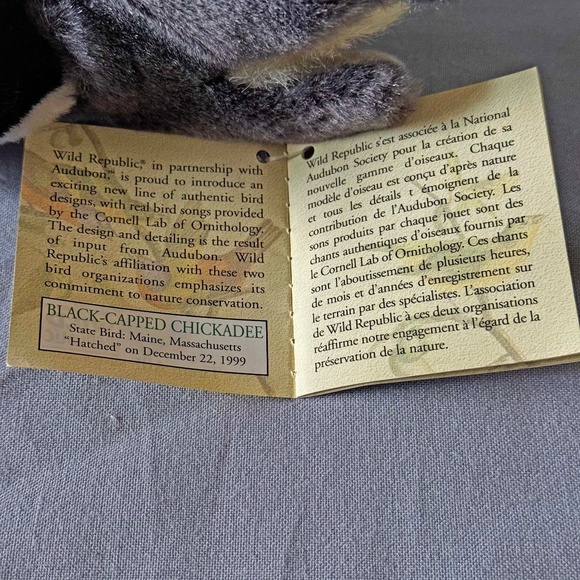 Wild Republic,® in partnership with
Audubon,™ is proud to introduce an
exciting new line of authentic bird
designs, with real bird songs provided
by the Cornell Lab of Ornithology.
The design and detailing is the result
of input from Audubon. Wild
Republic's affiliation with these two
bird organizations emphasizes its
commitment to nature conservation.
BLACK-CAPPED CHICKADEE
State Bird: Maine, Massachusetts
“Hatched” on December 22, 1999
Wild Republic s'est associée à la National
Audubon Society pour la création de sa
nouvelle gamme d'oiseaux. Chaque
modèle d'oiseau est conçu d'après nature
et tous les détails t émoignent de la
contribution de l'Audubon Society. Les
sons produits par chaque jouet sont des
chants authentiques d'oiseaux fournis par
le Cornell Lab of Ornithology. Ces chants
sont l'aboutissement de plusieurs heures,
de mois et d'années d'enregistrement sur
le terrain par des spécialistes. L'association
de Wild Republic à ces deux organisations
réaffirme notre engagement à l'égard de la
préservation de la nature.